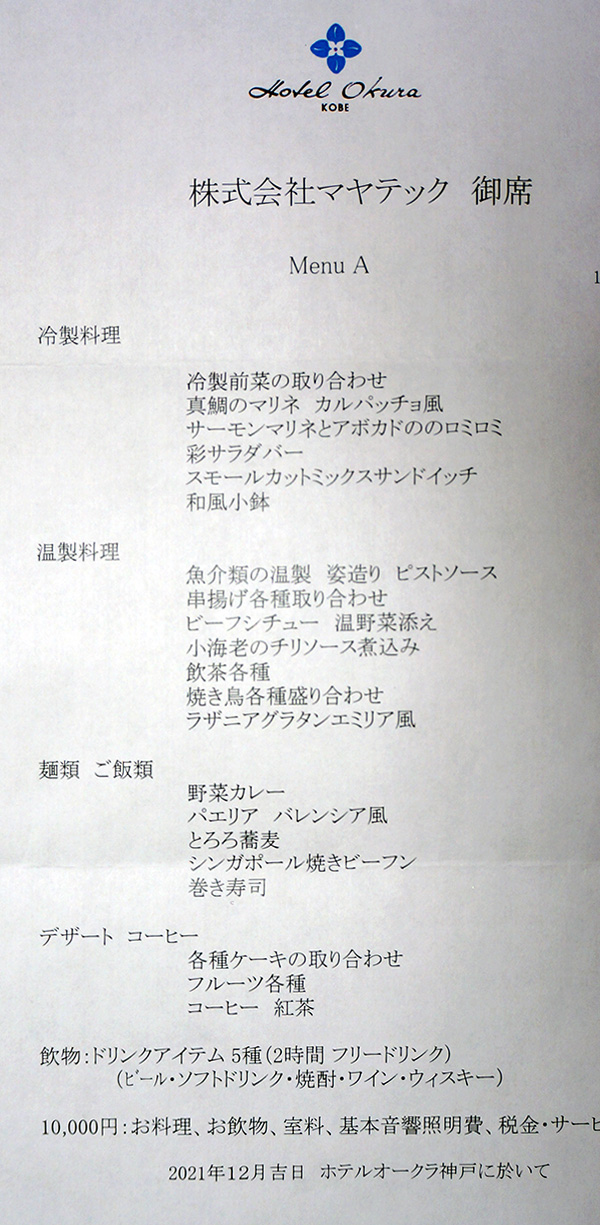 Hotel Okura
KOBE
株式会社マヤテック 御席
Menu A
1
冷製料理
冷製前菜の取り合わせ
真鯛のマリネ カルパッチョ風
サーモンマリネとアボカドののロミロミ
彩サラダバー
スモールカットミックスサンドイッチ
和風小鉢
温製料理
魚介類の温製 姿造り ピストソース
串揚げ各種取り合わせ
ビーフシチュー 温野菜添え
小海老のチリソース煮込み
飲茶各種
焼き鳥各種盛り合わせ
ラザニアグラタンエミリア風
麺類 ご飯類
野菜カレー
パエリア バレンシア風
とろろ蕎麦
シンガポール焼きビーフン
巻き寿司
デザート コーヒー
各種ケーキの取り合わせ
フルーツ各種
コーヒー 紅茶
飲物：ドリンクアイテム 5種（2時間 フリードリンク）
（ﾋﾞｰル・ソフトドリンク・焼酎・ワイン・ウィスキー）
10,000円：お料理、お飲物、室料、基本音響照明費、税金・サービ
2021年12月吉日 ホテルオークラ神戸に於いて